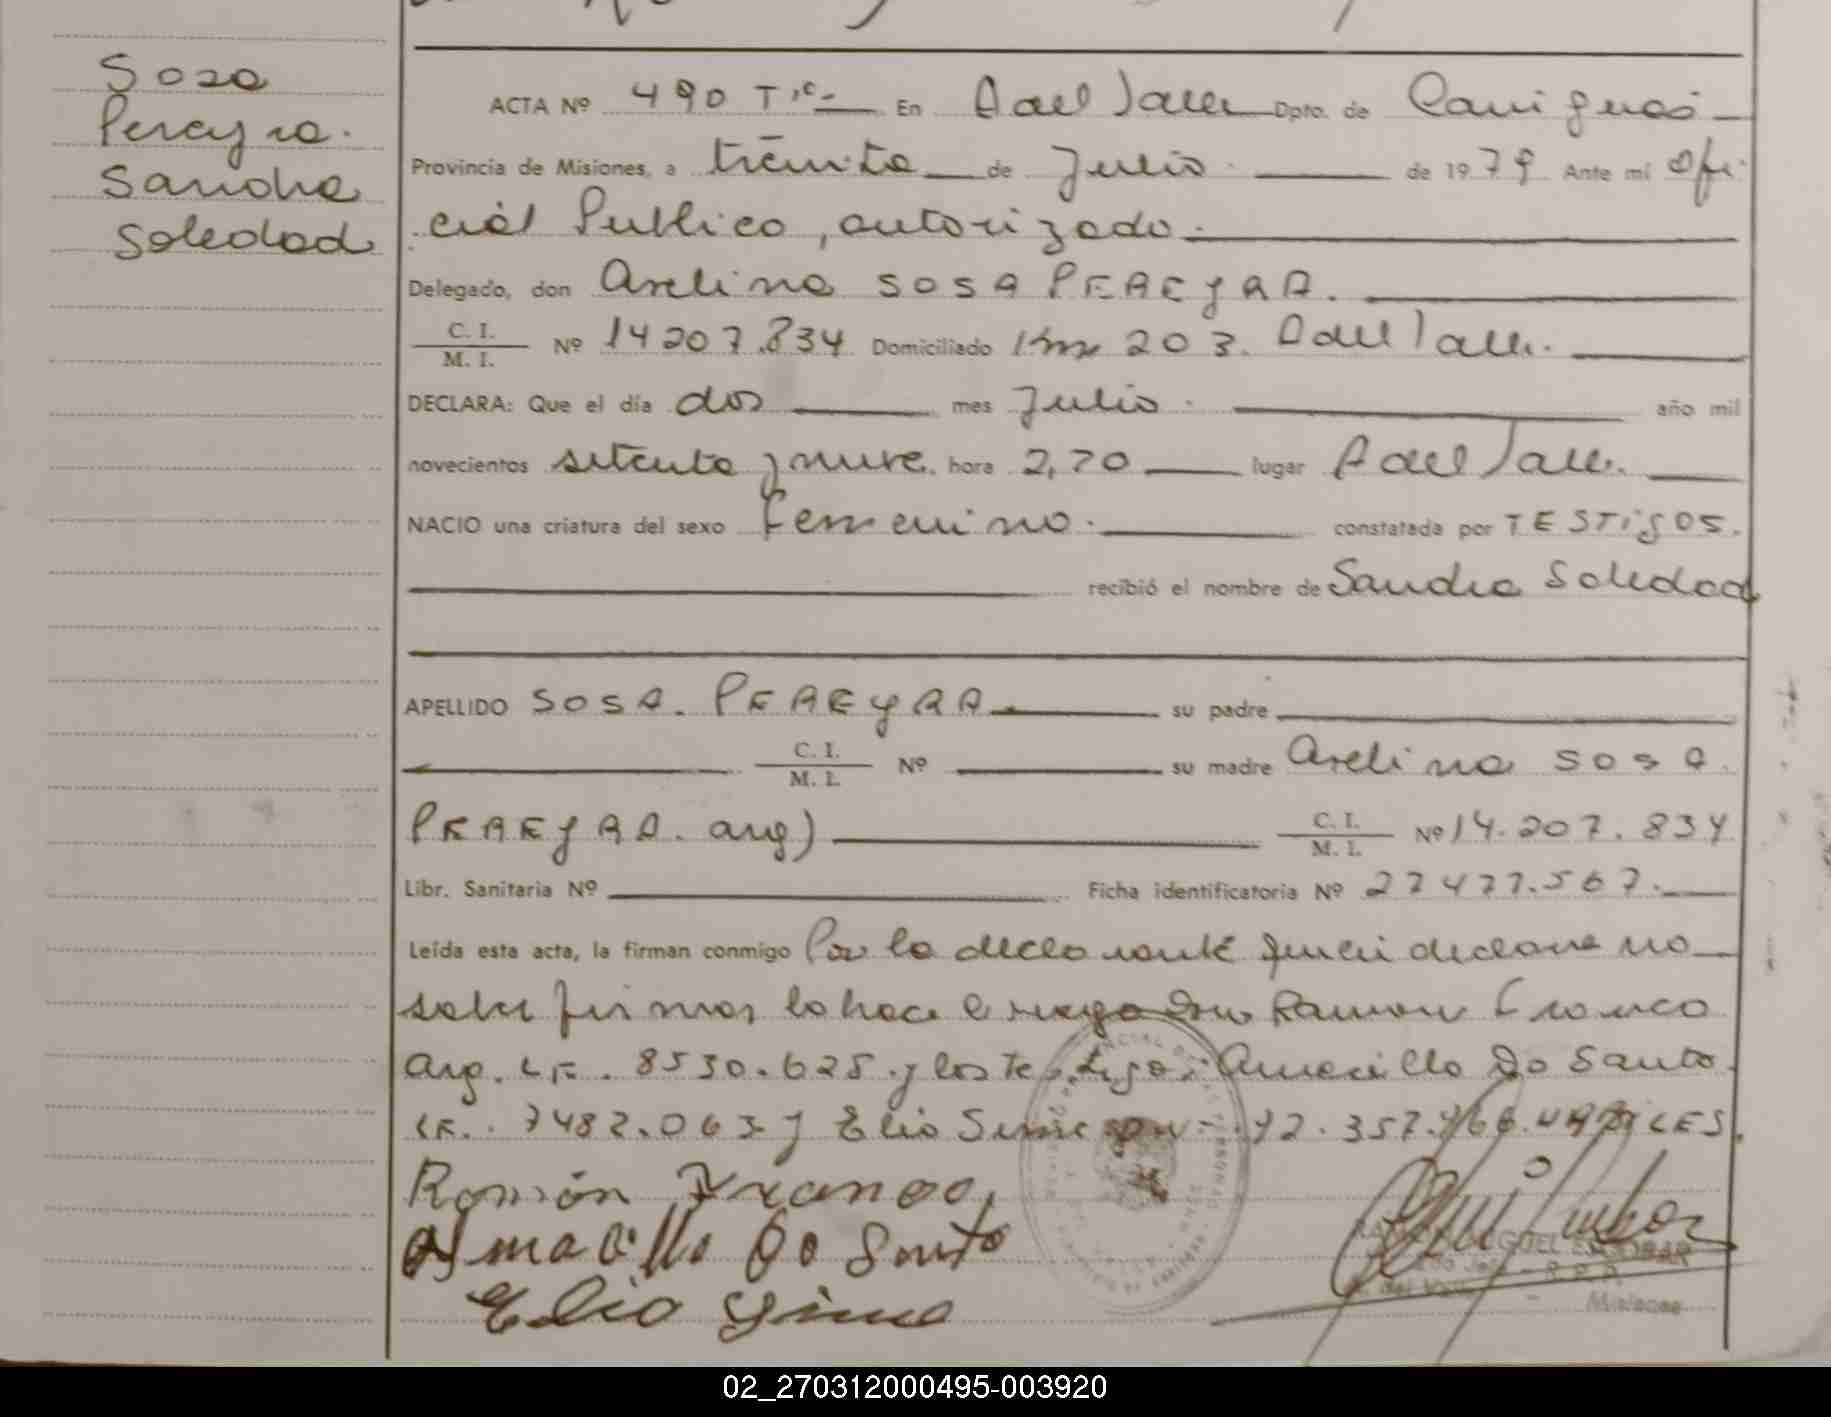 Sosa
Pereyra.
Sandra
Soledad
ACTA Nº 490 Tº- En A del Valle Dpto. de Cainguás
Provincia de Misiones, a treinta de Julio. de 1979 Ante mí Ofi-
cial Publico, autorizado.
Delegado, don Avelina SOSA PEREYRA.
C. I.
M. I. Nº 14207.834 Domiciliado Km 203. A del Valle.
DECLARA: Que el día dos mes Julio. año mil
novecientos setenta y nueve. hora 2,20 lugar A del Valle.
NACIO una criatura del sexo femenino. constatada por TESTigos.
recibió el nombre de Sandra Soledad
APELLIDO SOSA. PEREYRA su padre
C. I.
M. I. Nº su madre Avelina SOSA
PEREYRA. arg) C. I.
M. I. Nº 14.207.834
Libr. Sanitaria Nº Ficha identificatoria Nº 27477.567.
Leída esta acta, la firman conmigo Por la declarante quien declara no
saber firmar lo hace a ruego Don Ramon Franco
Arg. LE. 8530.625. y los testigos Amarillo Do Santo
LE. 7482.063 y Elio 12.357.
Ramón Franco,
Amarillo Do Santo
Elio
MIGUEL ESCOBAR
Misiones
02_270312000495-003920